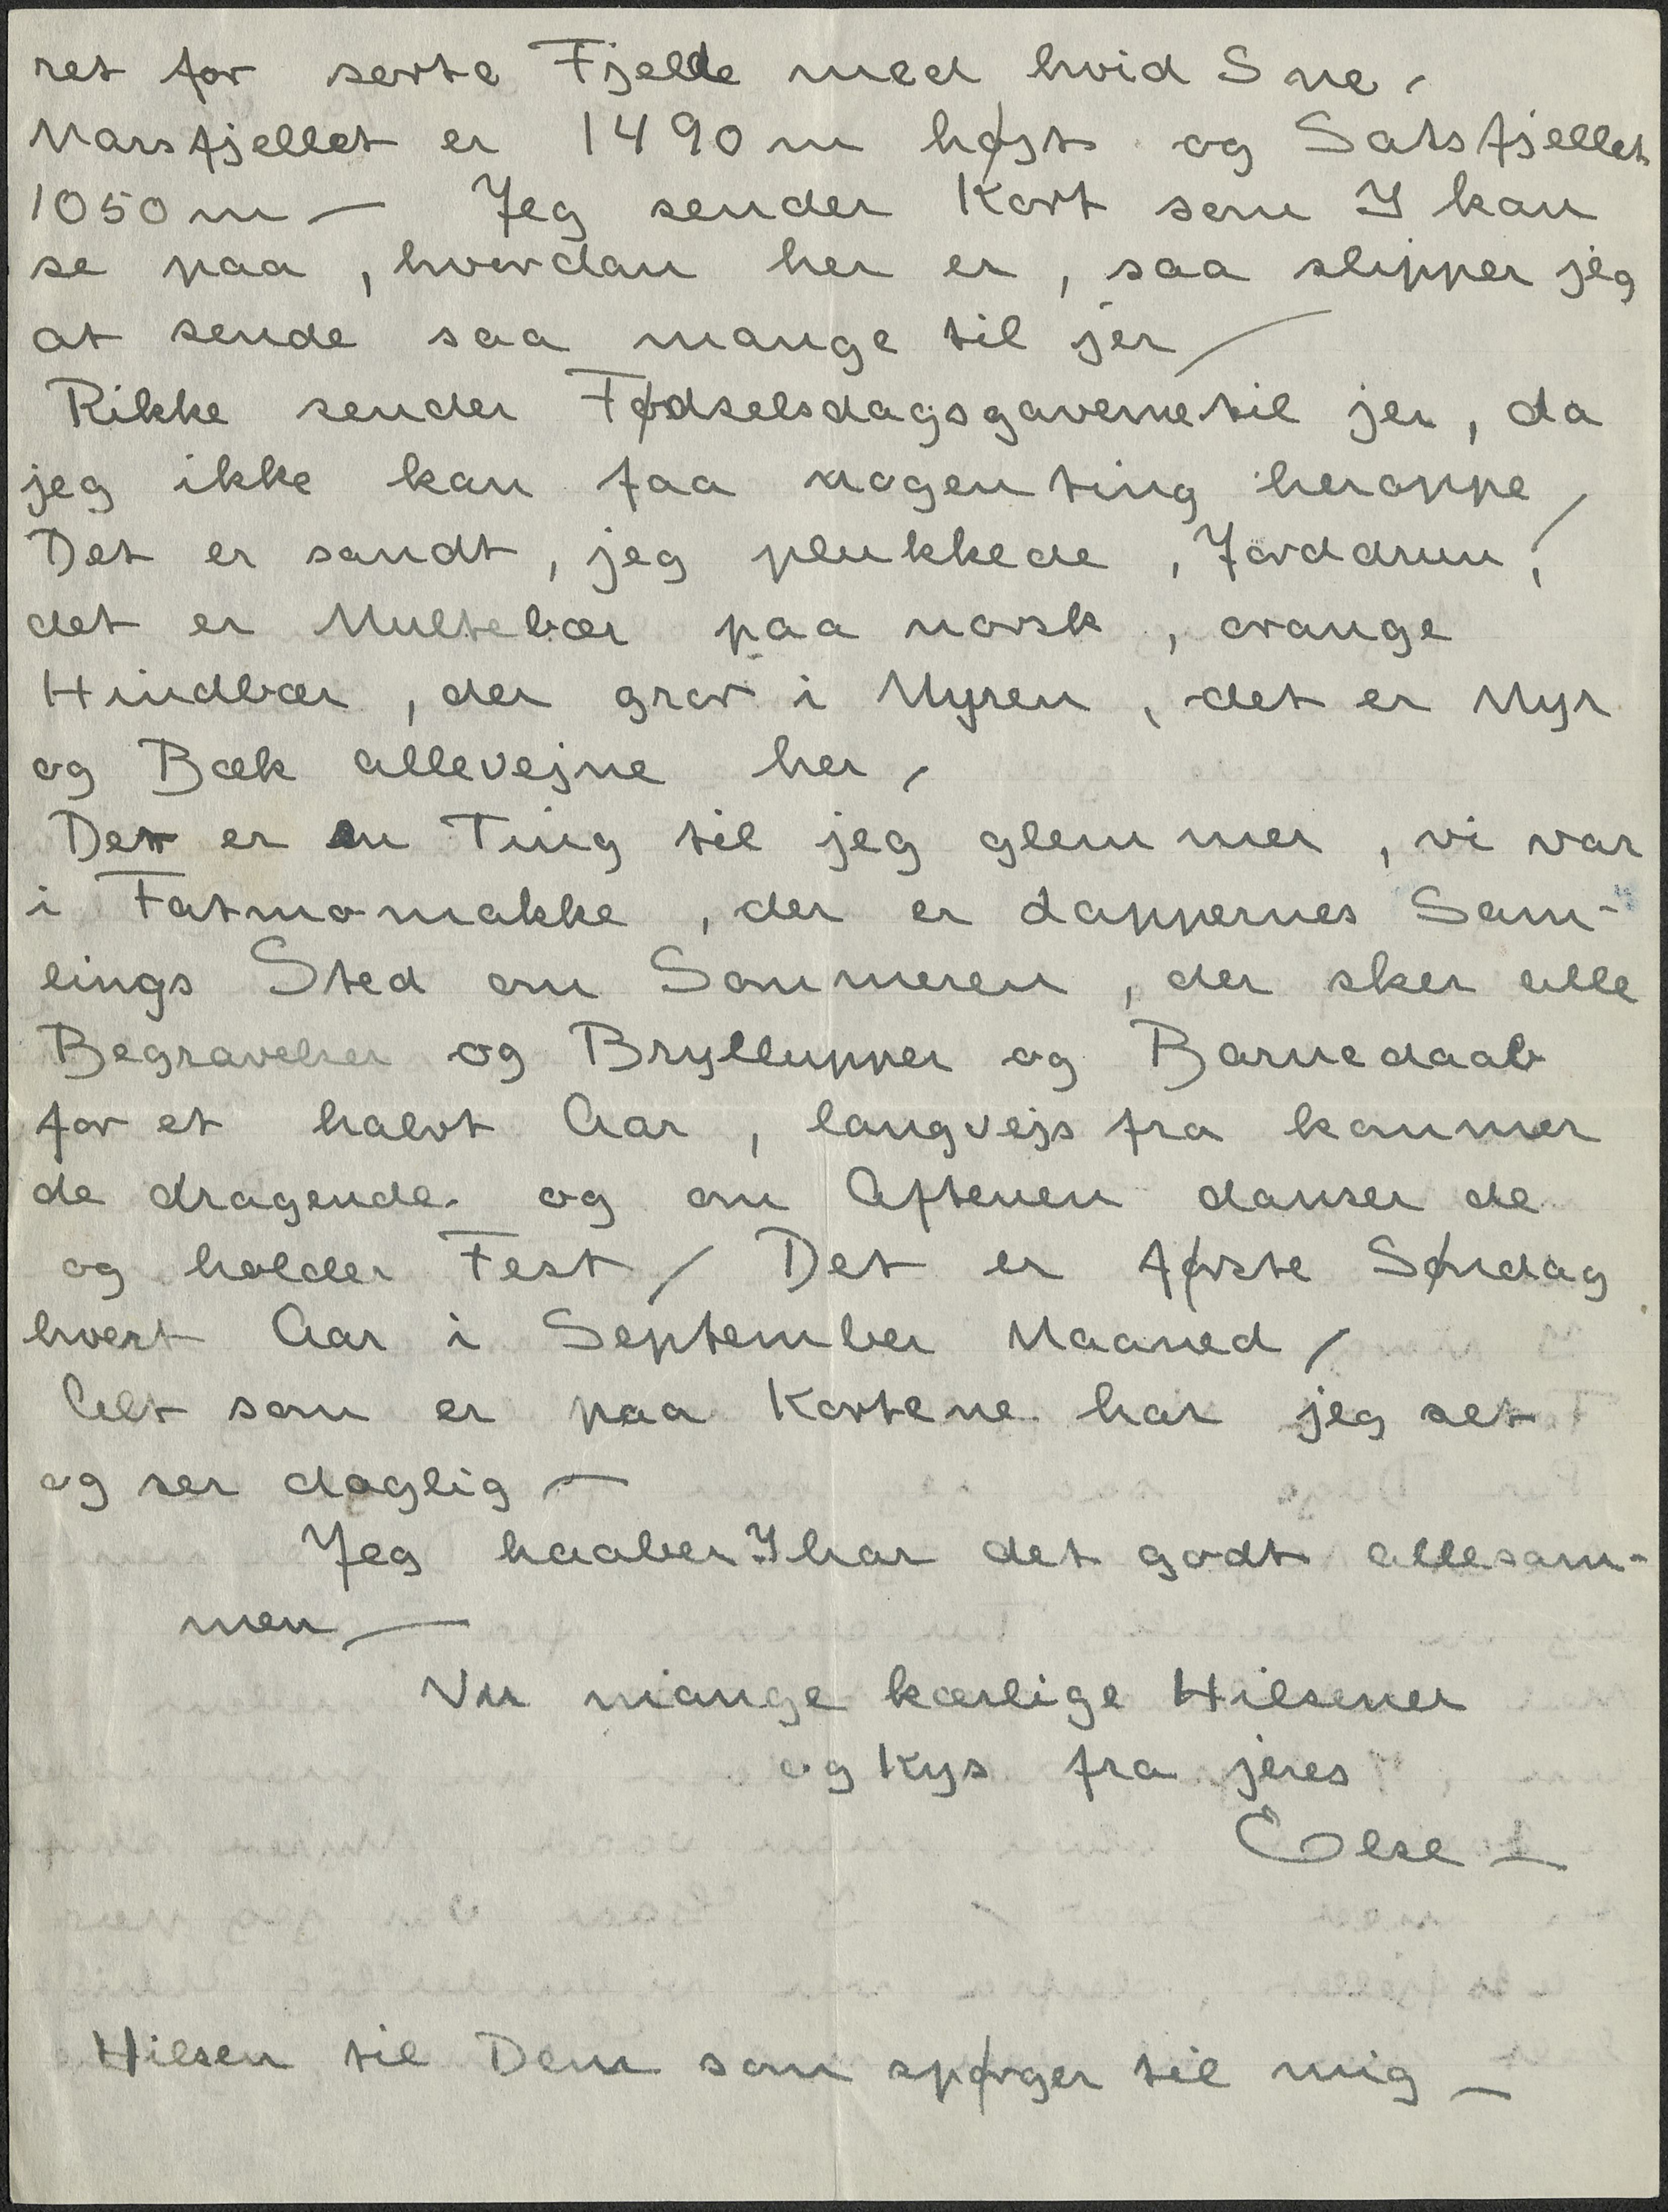 ret for sorte Fjelde med hvid Sne.
Marsfjellet er 1490 m højt og Satsfjellet
1050 m — Jeg sender Kort som I kan
se paa, hvordan her er, saa slipper jeg
at sende saa mange til jer /
Rikke sender Fødselsdagsgaverne til jer, da
jeg ikke kan faa nogenting heroppe /
Det er sandt, jeg plukkede, Jorddrun, /
det er Multebær paa norsk, orange
Hindbær, der gror i Myren, det er Myr
og Bæk allevejne her /
Der er en Ting til jeg glemmer, vi var
i Fatmomakke, der er Lappernes Sam-
lings Sted om Sommeren, der sker alle
Begravelser og Bryllupper og Barnedaab
for et halvt Aar, langvejs fra kommer
de dragende og om Aftenen danser de
og holder Fest / Det er første Søndag
hvert Aar i September Maaned /
Alt som er paa Kortene har jeg set
og ser daglig —
Jeg haaber I har det godt allesam-
men —
Nu mange kærlige Hilsener
og Kys fra jeres
Else —
Hilsen til Dem som spørger til mig —